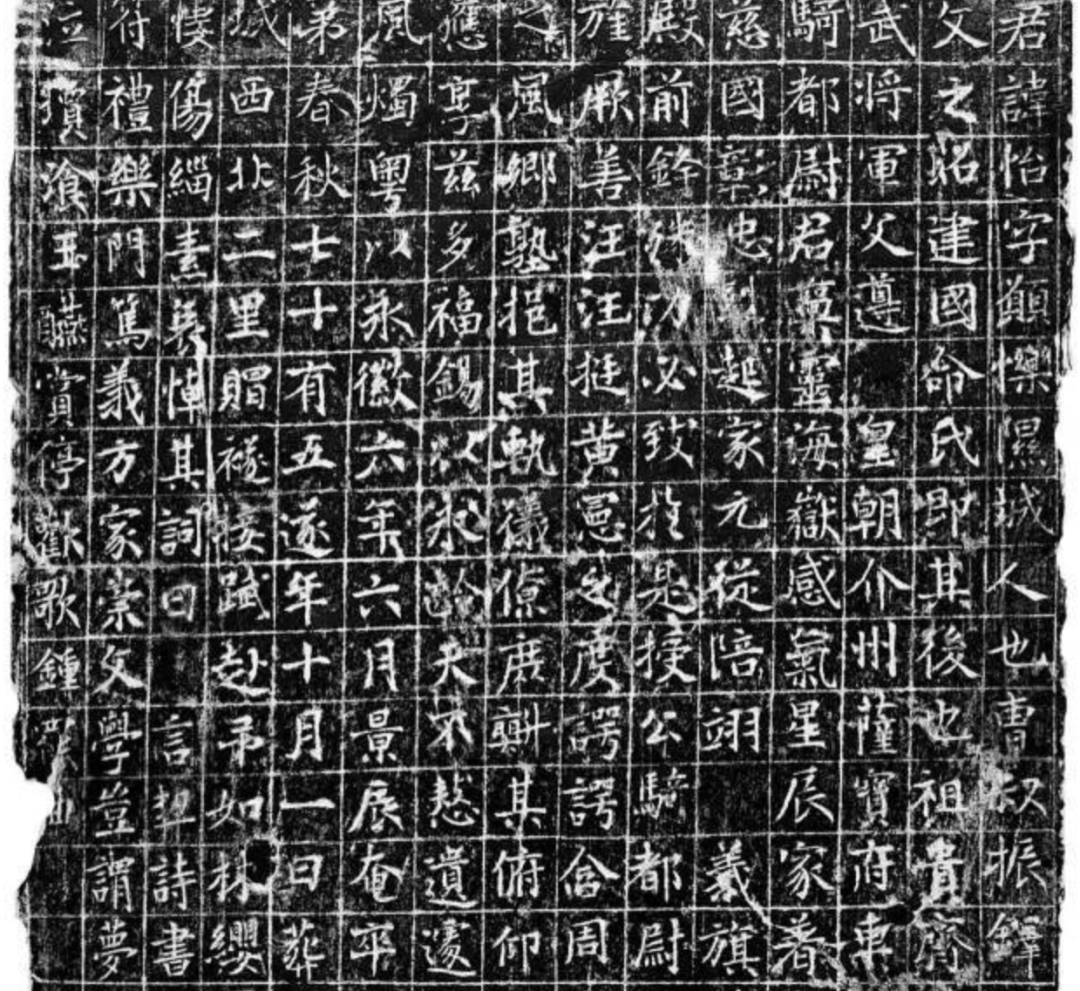 君諱怡字隰城人也曹叔振鐸
文之昭建國命氏即其後也祖貴齊
武将軍父遵皇朝介州薩寶府車
騎都尉君稟靈海嶽感氣星辰家著
慈國彰忠則起家元從陪翊義旗
殿前銓殊功必致於是授公騎都尉
旌厥善汪汪挺黄憲之度諤諤含周
之風鄉塾挹其軌儀僚庶斟其俯仰
應享兹多福錫以永齡天不憖遺遽
風燭粤以永徽六年六月景辰奄卒
第春秋七十有五遂年十月一日葬
城西北二里賵襚接赴弔如林纓
悽傷緇素悼其詞曰言契詩書
符禮樂門篤義方家崇文學豈謂夢
泣飡玉醼賞停歡歌鍾